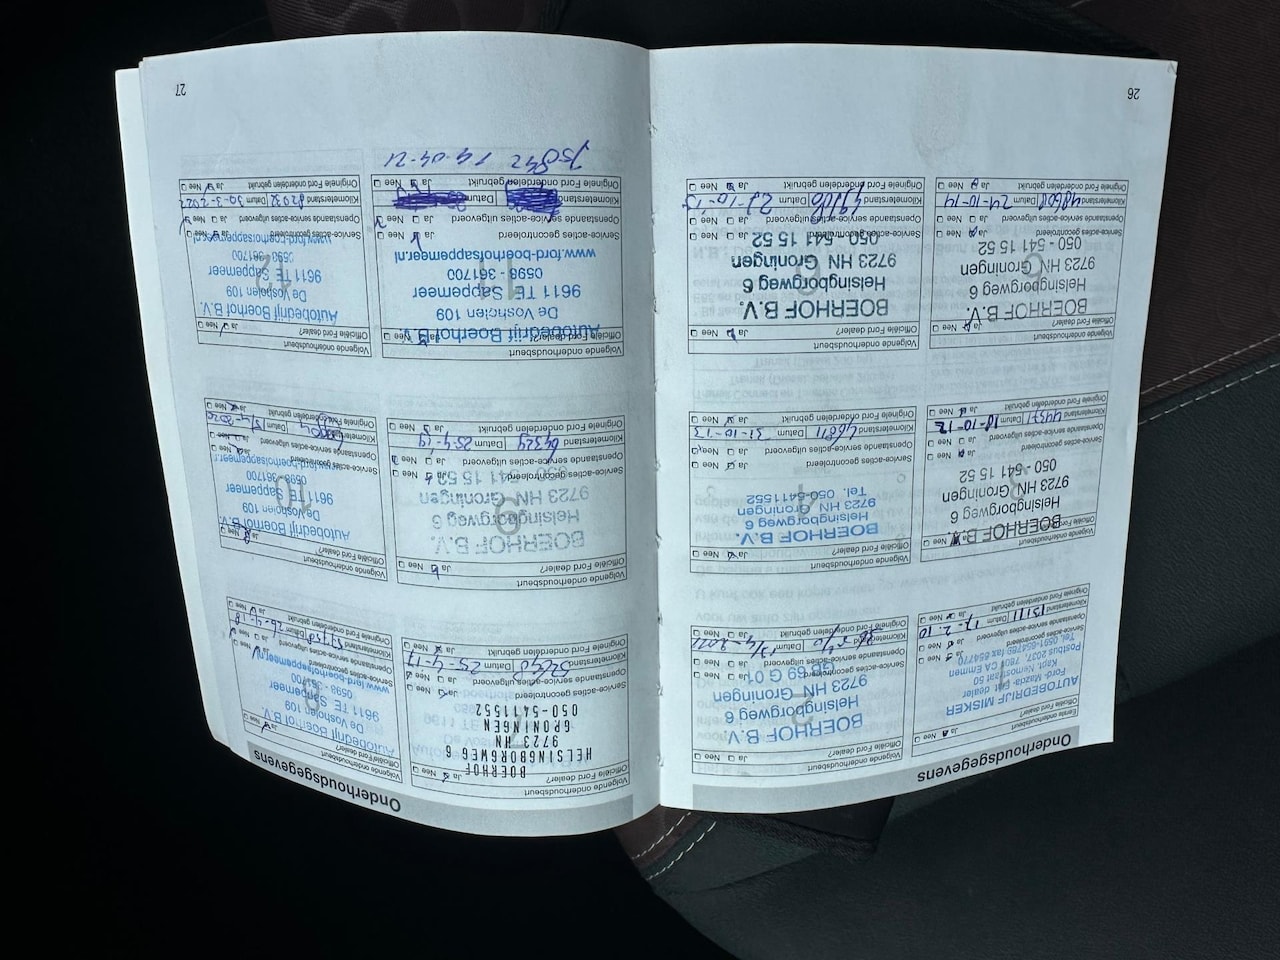 Onderhoudsgegevens
Eerste onderhoudsbeurt
Officiële Ford dealer? Ja Nee
1
AUTOBEDRIJF MISKER
Ford- Mazda dealer
Kapt. Nemostraat 50
Postbus 2037, 7801 CA Emmen
Service-acties gecontroleerd Ja Nee
Openstaande service-acties uitgevoerd Ja Nee
Kilometerstand 15111 Datum 17-2-10
Originele Ford onderdelen gebruikt Ja Nee
Volgende onderhoudsbeurt
Officiële Ford dealer? Ja Nee
BOERHOF B.V.
Helsingborgweg 6
9723 HN Groningen
GB 69 G 01
Service-acties gecontroleerd Ja Nee
Openstaande service-acties uitgevoerd Ja Nee
Kilometerstand Datum
Originele Ford onderdelen gebruikt Ja Nee
Volgende onderhoudsbeurt
Officiële Ford dealer? Ja Nee
3
BOERHOF B.V.
Helsingborgweg 6
9723 HN Groningen
050 - 541 15 52
Service-acties gecontroleerd Ja Nee
Openstaande service-acties uitgevoerd Ja Nee
Kilometerstand Datum 18-10-12
Originele Ford onderdelen gebruikt Ja Nee
Volgende onderhoudsbeurt
Officiële Ford dealer? Ja Nee
4
BOERHOF B.V.
Helsingborgweg 6
9723 HN Groningen
Tel. 050-5411552
Service-acties gecontroleerd Ja Nee
Openstaande service-acties uitgevoerd Ja Nee
Kilometerstand 46811 Datum 31-10-13
Originele Ford onderdelen gebruikt Ja Nee
Volgende onderhoudsbeurt
Officiële Ford dealer? Ja Nee
5
BOERHOF B.V.
Helsingborgweg 6
9723 HN Groningen
050 - 541 15 52
Service-acties gecontroleerd Ja Nee
Openstaande service-acties uitgevoerd Ja Nee
Kilometerstand 48608 Datum 24-10-14
Originele Ford onderdelen gebruikt Ja Nee
Volgende onderhoudsbeurt
Officiële Ford dealer? Ja Nee
6
BOERHOF B.V.
Helsingborgweg 6
9723 HN Groningen
050 - 541 15 52
Service-acties gecontroleerd Ja Nee
Openstaande service-acties uitgevoerd Ja Nee
Kilometerstand Datum
Originele Ford onderdelen gebruikt Ja Nee
26
Onderhoudsgegevens
Volgende onderhoudsbeurt
Officiële Ford dealer? Ja Nee
7
BOERHOF
HELSINGBORGWEG 6
9723 HN
GRONINGEN
050-5411552
Service-acties gecontroleerd Ja Nee
Openstaande service-acties uitgevoerd Ja Nee
Kilometerstand Datum 25-4-17
Originele Ford onderdelen gebruikt Ja Nee
Volgende onderhoudsbeurt
Officiële Ford dealer? Ja Nee
8
Autobedrijf Boerhof B.V.
De Vosholen 109
9611 TE Sappemeer
0598 - 361700
www.ford-boerhofsappemeer.nl
Service-acties gecontroleerd Ja Nee
Openstaande service-acties uitgevoerd Ja Nee
Kilometerstand Datum 26-4-18
Originele Ford onderdelen gebruikt Ja Nee
Volgende onderhoudsbeurt
Officiële Ford dealer? Ja Nee
9
BOERHOF B.V.
Helsingborgweg 6
9723 HN Groningen
050 - 541 15 52
Service-acties gecontroleerd Ja Nee
Openstaande service-acties uitgevoerd Ja Nee
Kilometerstand 64324 Datum 25-4-19
Originele Ford onderdelen gebruikt Ja Nee
Volgende onderhoudsbeurt
Officiële Ford dealer? Ja Nee
10
Autobedrijf Boerhof B.V.
De Vosholen 109
9611 TE Sappemeer
0598-361700
www.ford-boerhofsappemeer.nl
Service-acties gecontroleerd Ja Nee
Openstaande service-acties uitgevoerd Ja Nee
Kilometerstand Datum
Originele Ford onderdelen gebruikt Ja Nee
Volgende onderhoudsbeurt
Officiële Ford dealer? Ja Nee
11
Autobedrijf Boerhof B.V.
De Vosholen 109
9611 TE Sappemeer
0598 - 361700
www.ford-boerhofsappemeer.nl
Service-acties gecontroleerd Ja Nee
Openstaande service-acties uitgevoerd Ja Nee
Kilometerstand Datum
Originele Ford onderdelen gebruikt Ja Nee
75842 14-04-21
Volgende onderhoudsbeurt
Officiële Ford dealer? Ja Nee
12
Autobedrijf Boerhof B.V.
De Vosholen 109
9611 TE Sappemeer
0598-361700
www.ford-boerhofsappemeer.nl
Service-acties gecontroleerd Ja Nee
Openstaande service-acties uitgevoerd Ja Nee
Kilometerstand 82032 Datum 30-3-2022
Originele Ford onderdelen gebruikt Ja Nee
27